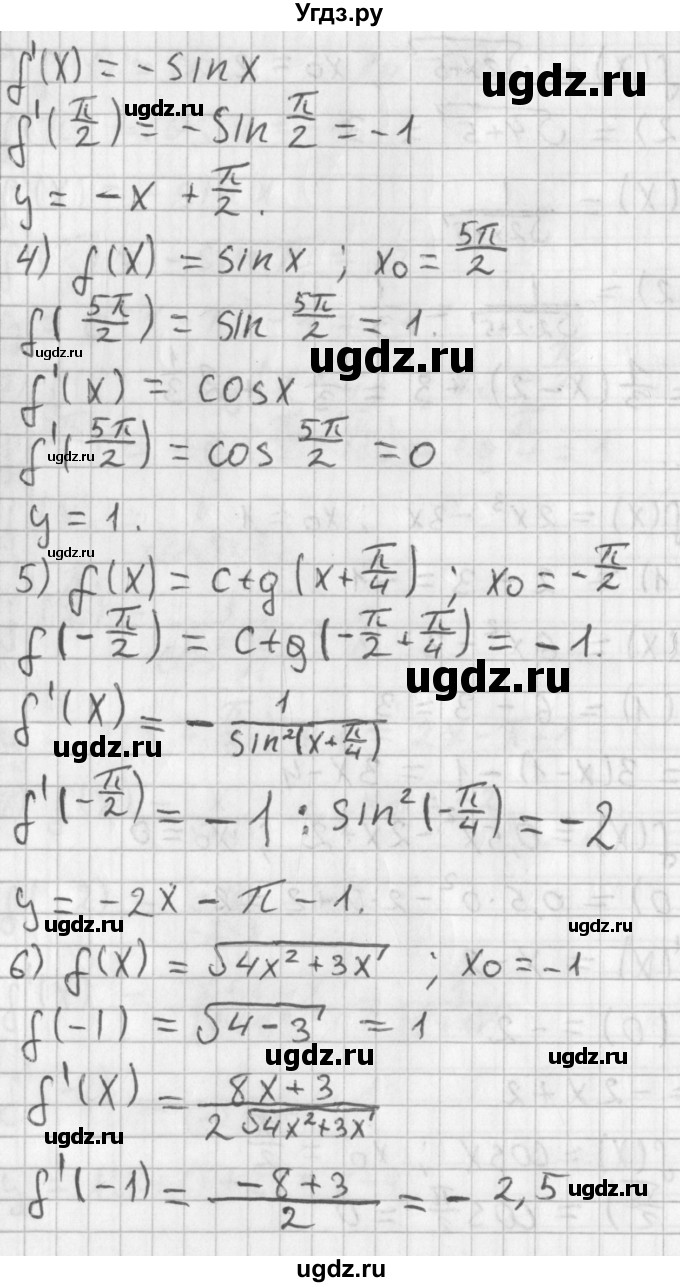 Угдз.ру
f'(x) = -sinx
ugdz.ru
ugdz.ru
f'(π/2) = -sin π/2 = -1
y = -x + π/2.
4) f(x) = sinx ; x0 = 5π/2
f(5π/2) = sin 5π/2 = 1.
ugdz.ru
ugdz.ru
f'(x) = cosx
f'(5π/2) = cos 5π/2 = 0
ugdz.ru
y = 1.
ugdz.ru
5) f(x) = ctg(x+π/4) ; x0 = -π/2
f(-π/2) = ctg(-π/2+π/4) = -1.
ugdz.ru
f'(x) = - 1/sin²(x+π/4)
ugdz.ru
f'(-π/2) = -1 : sin²(-π/4) = -2
y = -2x - π - 1.
ugdz.ru
ugdz.ru
6) f(x) = √4x²+3x ; x0 = -1
f(-1) = √4-3 = 1
ugdz.ru
ugdz.ru
f'(x) = 8x+3/2√4x²+3x
ugdz.ru
f'(-1) = -8+3/2 = -2,5
ugdz.ru
ugdz.ru